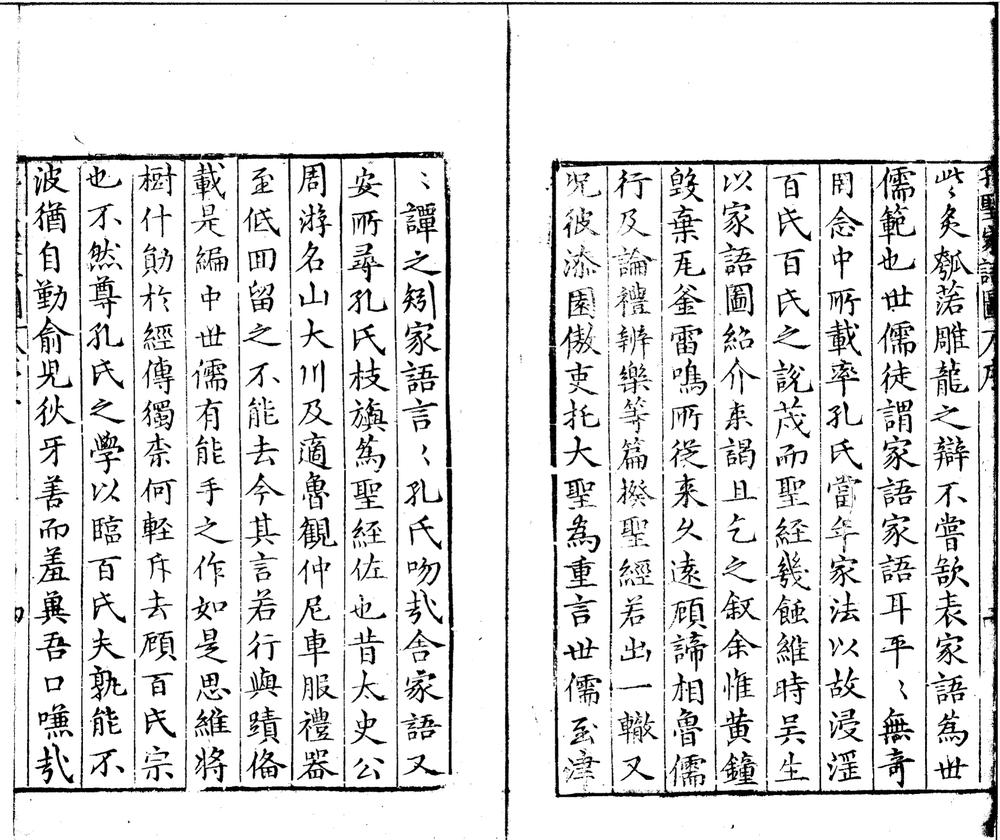 此〻炙瓠蕍雕龍之辯不嘗欿表家語為世
儒範也世儒徒謂家語家語耳平〻無竒
罔念中所載率孔氏當年家法以故浸淫
百氏百氏之說茂而聖經幾蝕維時吴生
以家語圖紹介来謁且乞之叙余惟黄鐘
毀棄瓦釜雷鳴所從来久遠顧諦相魯儒
行及論禮辨樂等篇揆聖經若出一轍又
况彼漆園傲吏托大聖為重言世儒至津
〻譚之矧家語言〻孔氏吻㢤舎家語又
安所尋孔氏枝旗為聖經佐也昔太史公
周游名山大川及適魯觀仲尼車服禮器
至低囬留之不能去今其言若行與蹟俻
載是編中世儒有能手之作如是思維將
樹什勛於經傳獨柰何輕斥去顧百氏宗
也不然尊孔氏之學以臨百氏夫孰能不
波猶自勤俞児狄牙善而羞冀吾口嗛㢤